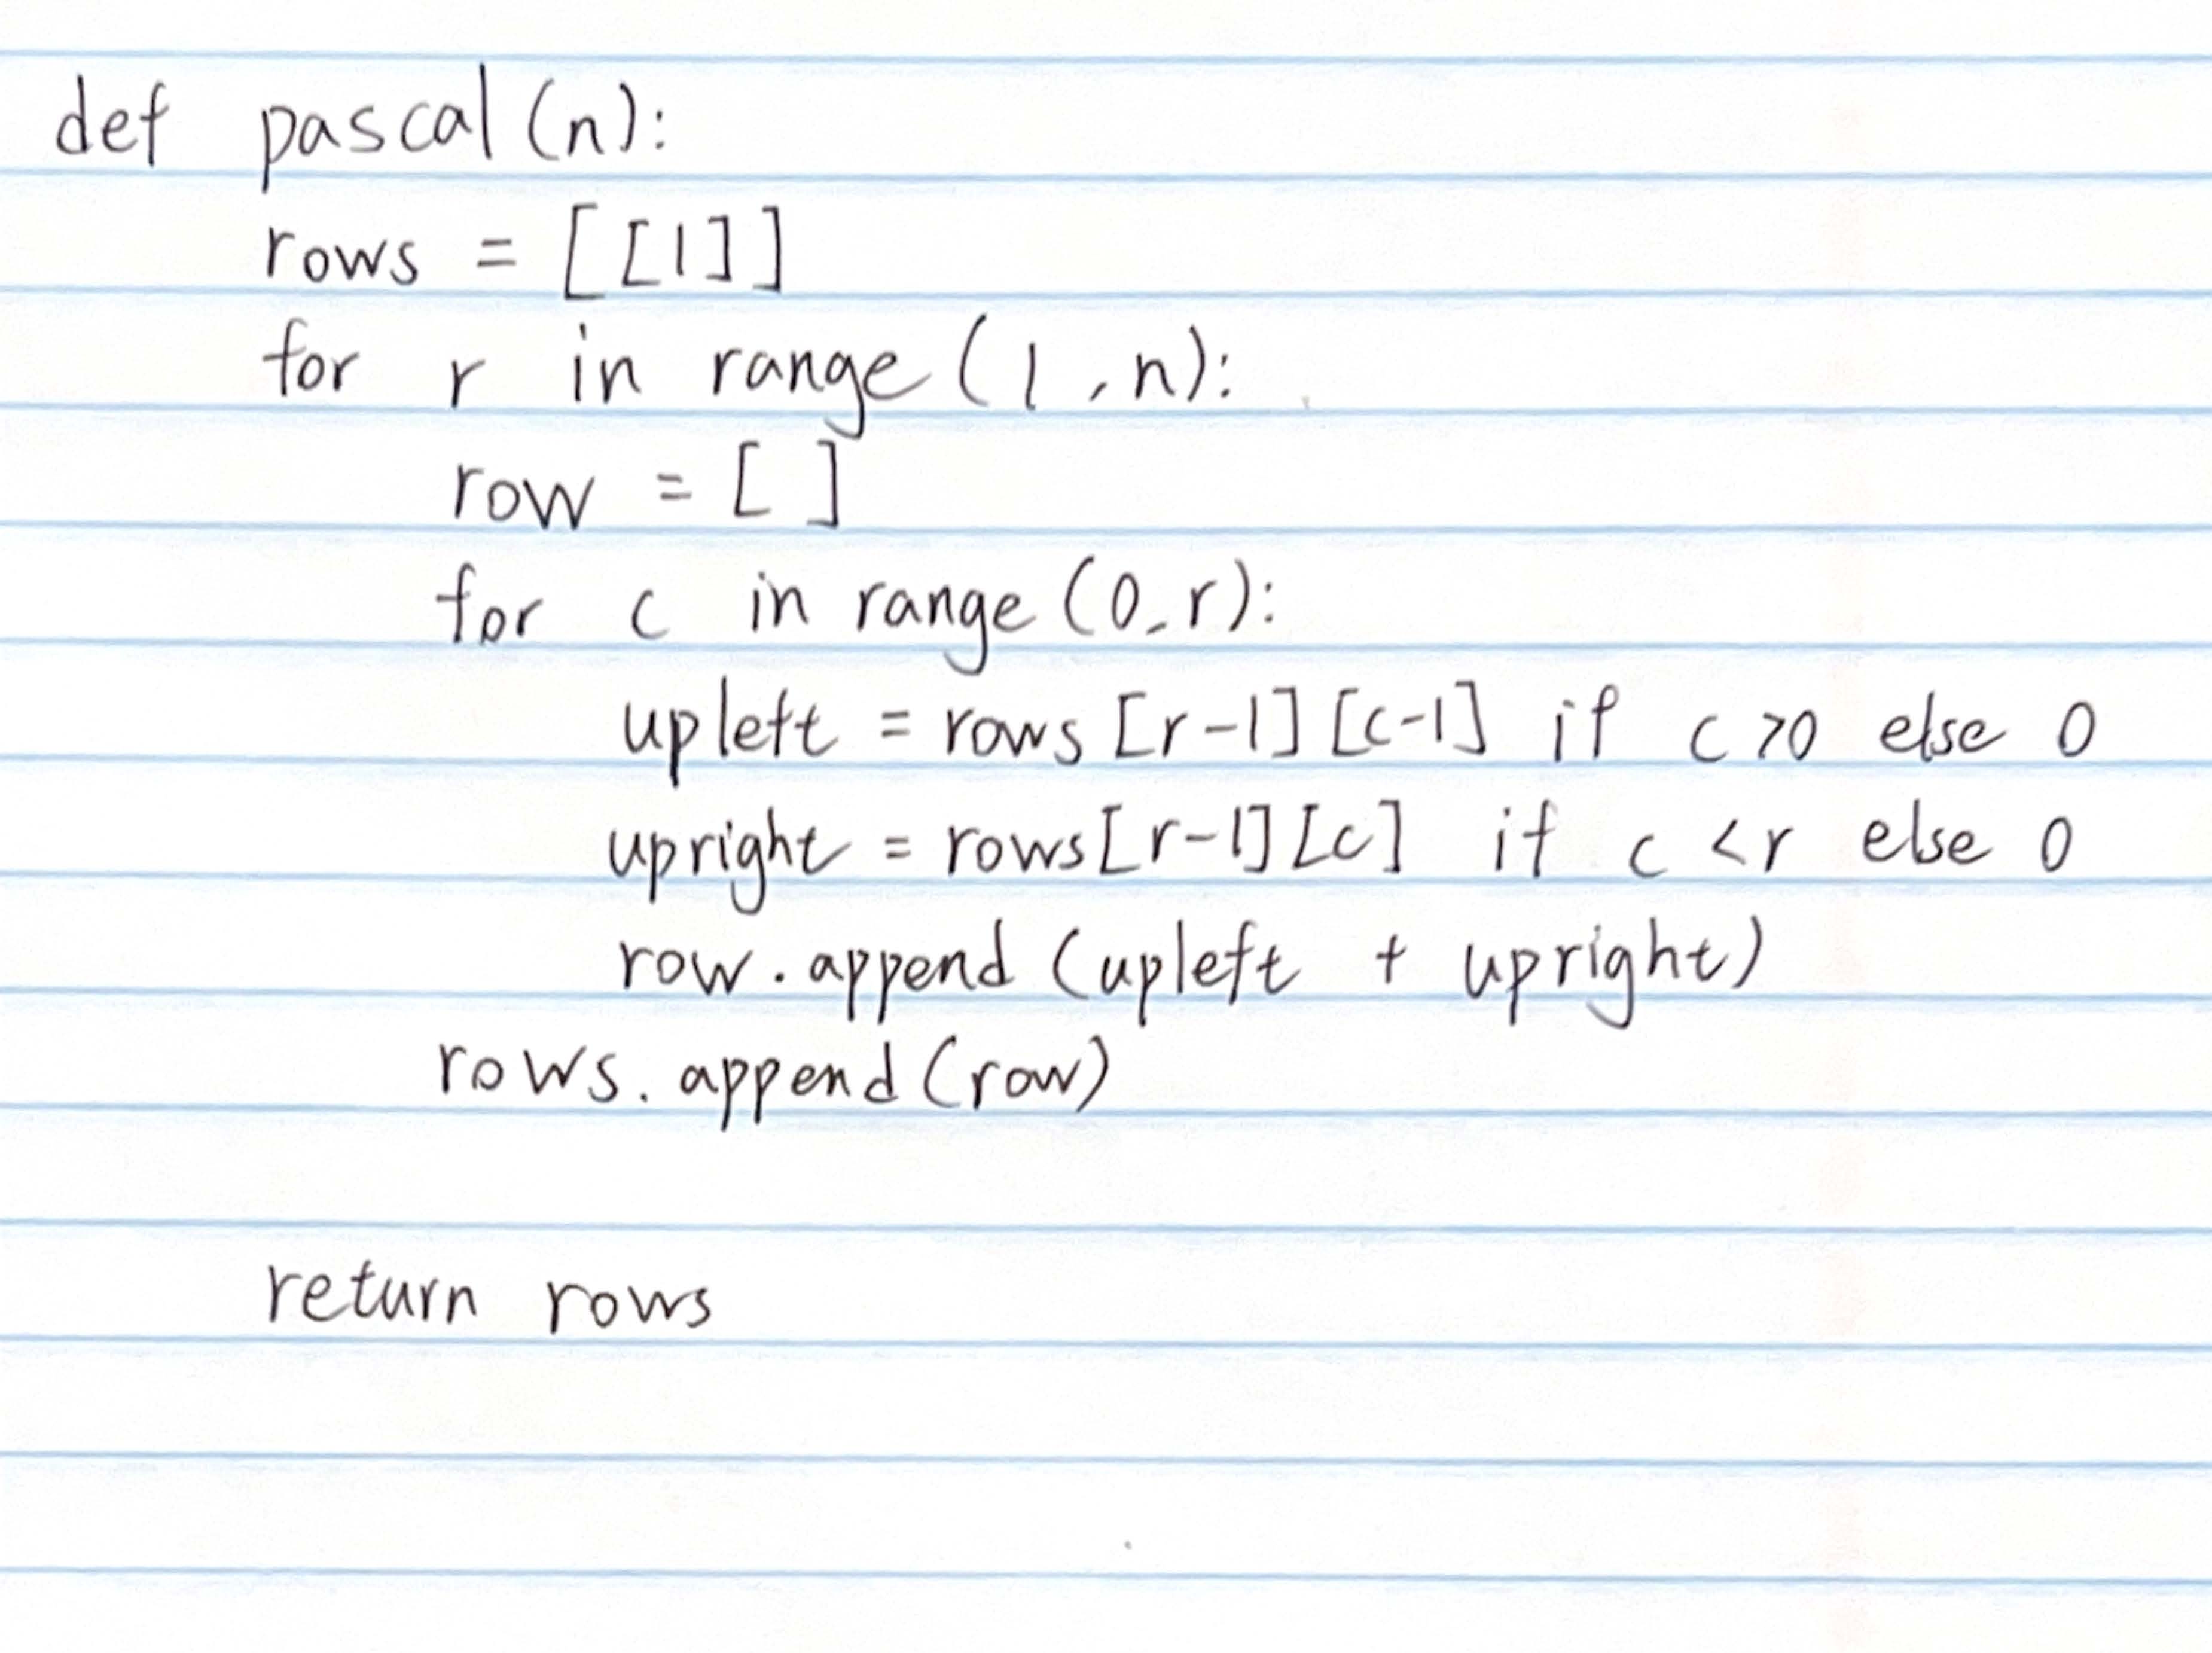 def pascal(n):
    rows = [[1]]
    for r in range(1,n):
        row = []
        for c in range(0,r):
            upleft = rows[r-1][c-1] if c>0 else 0
            upright = rows[r-1][c] if c<r else 0
            row.append(upleft + upright)
        rows.append(row)

    return rows